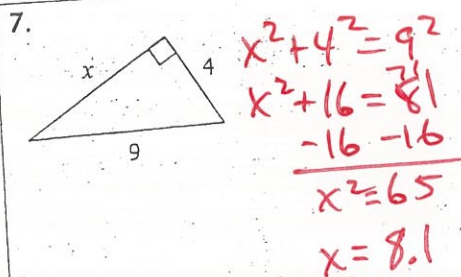 7.
x
4
9
x² + 4² = 9²
x² + 16 = 81
-16 -16
x² = 65
x = 8.1